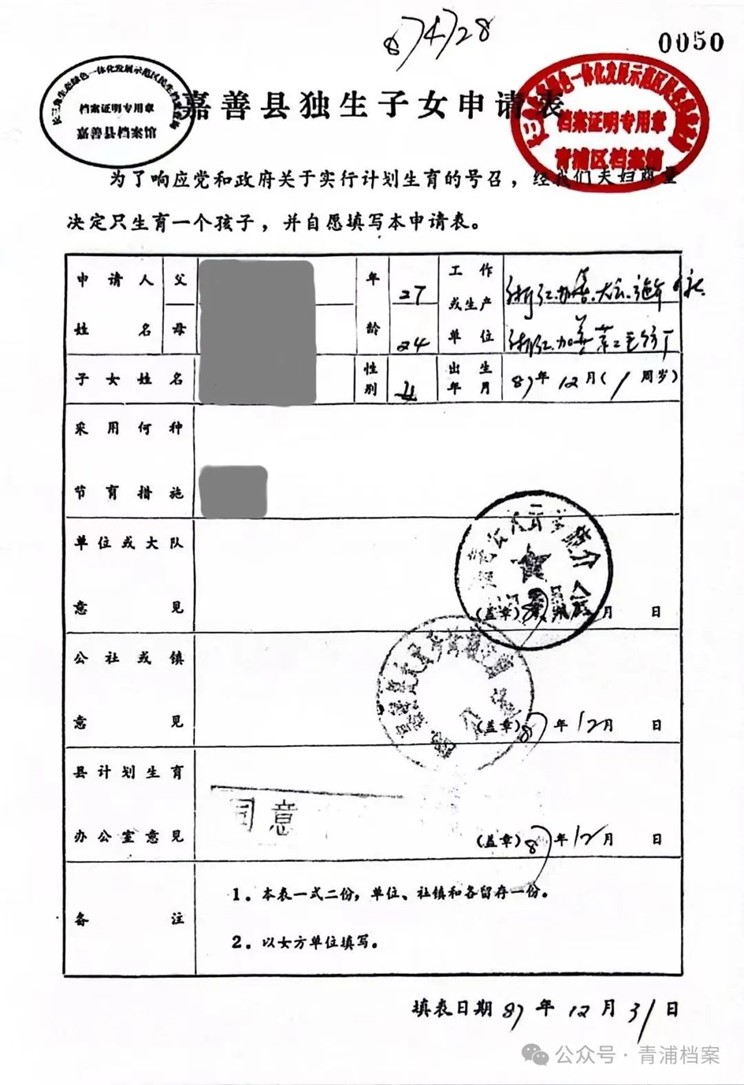 874728
0050
长三角生态绿色一体化发展示范区民生档案
档案证明专用章
嘉善县档案馆
嘉善县独生子女申请表
档案证明专用章
青浦区档案馆
为了响应党和政府关于实行计划生育的号召，经我们夫妇商量
决定只生育一个孩子，并自愿填写本申请表。
申请人 父 年 27 工作
姓名 母 龄 24 或生产
单位
子女姓名 性别 女 出生年月 87年12月(1周岁)
采用何种
节育措施
单位或大队
意见 (盖章) 月 日
公社或镇
意见 (盖章) 87年12月 日
县计划生育 同意
办公室意见 (盖章) 87年12月 日
备注
1。本表一式二份，单位、社镇和各留存一份。
2。以女方单位填写。
填表日期 87年12月31日
公众号·青浦档案